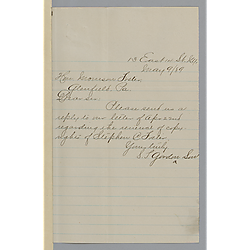 13 East 14 St N.Y.
May 9/89
Hon. Morrison Foster
Glenfield, Pa
Dear Sir
Please send us a
reply to our letter of Apr
regarding the renewal of copy-
rights of Stephen C Foster
Yours truly
S. T. Gordon & Son